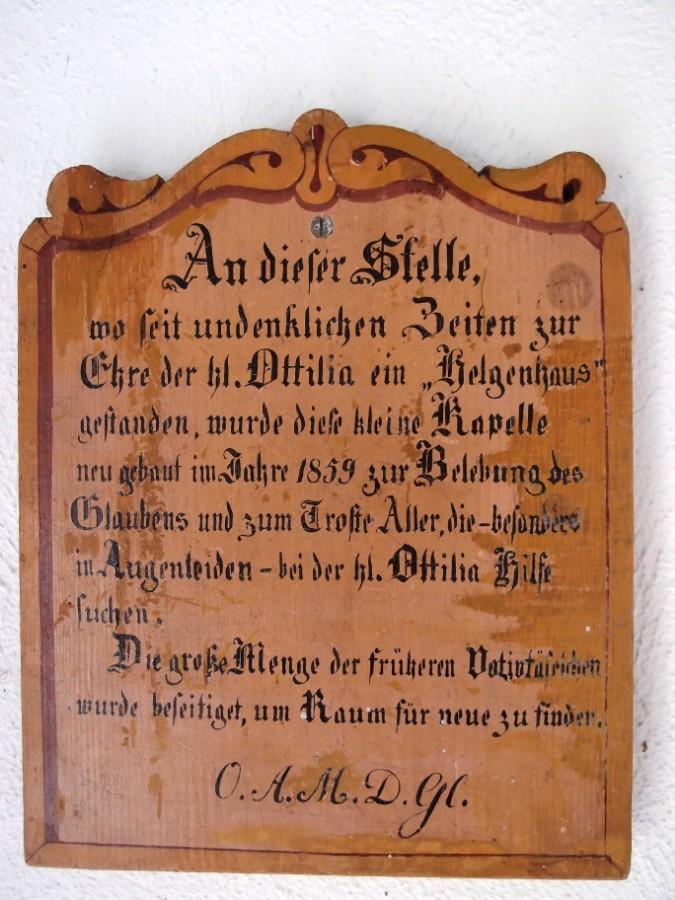 An dieser Stelle,
wo seit undenklichen Zeiten zur
Ehre der hl. Ottilia ein „Helgenhaus"
gestanden, wurde diese kleine Kapelle
neu gebaut im Jahre 1859 zur Belebung des
Glaubens und zum Troste Aller, die - besonders
in Augenleiden - bei der hl. Ottilia Hilfe
suchen.
Die große Menge der früheren Votivtäfelchen
wurde beseitiget, um Raum für neue zu finden.
O. A. M. D. Gl.